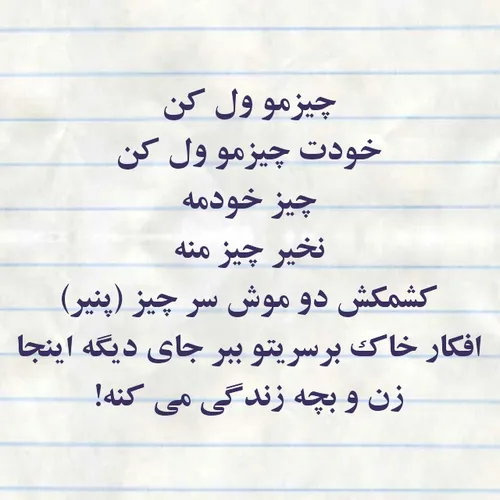 چیزمو ول کن
خودت چیزمو ول کن
چیز خودمه
نخیر چیز منه
کشمکش دو موش سر چیز (پنیر)
افکار خاک برسریتو ببر جای دیگه اینجا
زن و بچه زندگی می کنه!